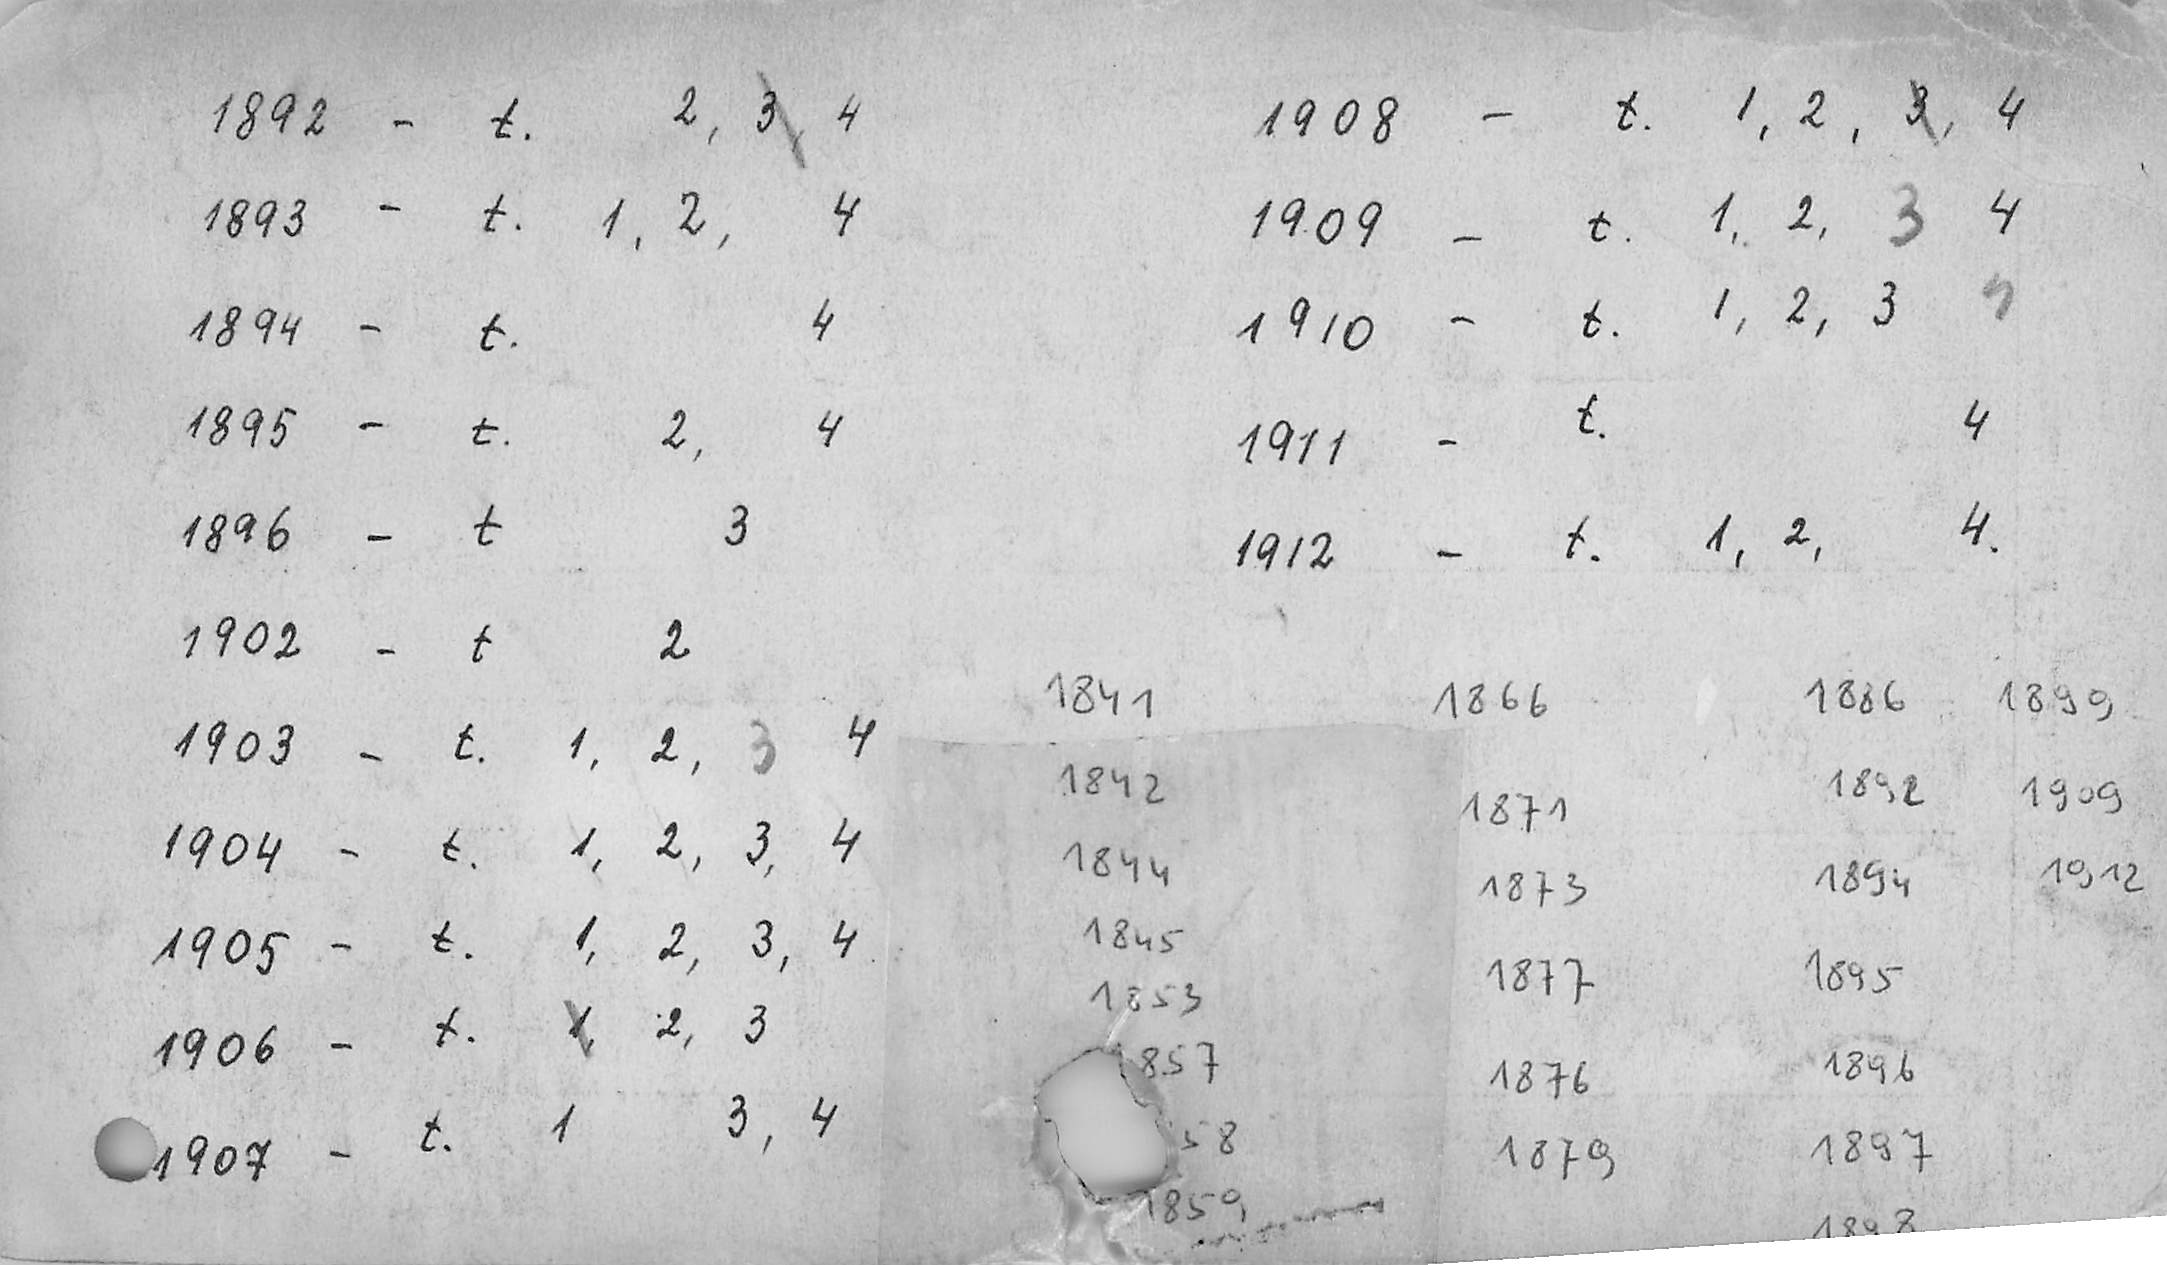 1892 - t. 2, 3, 4
1893 - t. 1, 2, 4
1894 - t. 4
1895 - t. 2, 4
1896 - t 3
1902 - t 2
1903 - t. 1, 2, 3 4
1904 - t. 1, 2, 3, 4
1905 - t. 1, 2, 3, 4
1906 - t. 1, 2, 3
1907 - t. 1 3, 4
1908 - t. 1, 2, 3, 4
1909 - t. 1, 2, 3 4
1910 - t. 1, 2, 3
1911 - t. 4
1912 - t. 1, 2, 4.
1841
1842
1844
1845
1853
857
58
1859
1866
1871
1873
1877
1876
1879
1886
1892
1894
1895
1896
1897
1898
1899
1909
1912